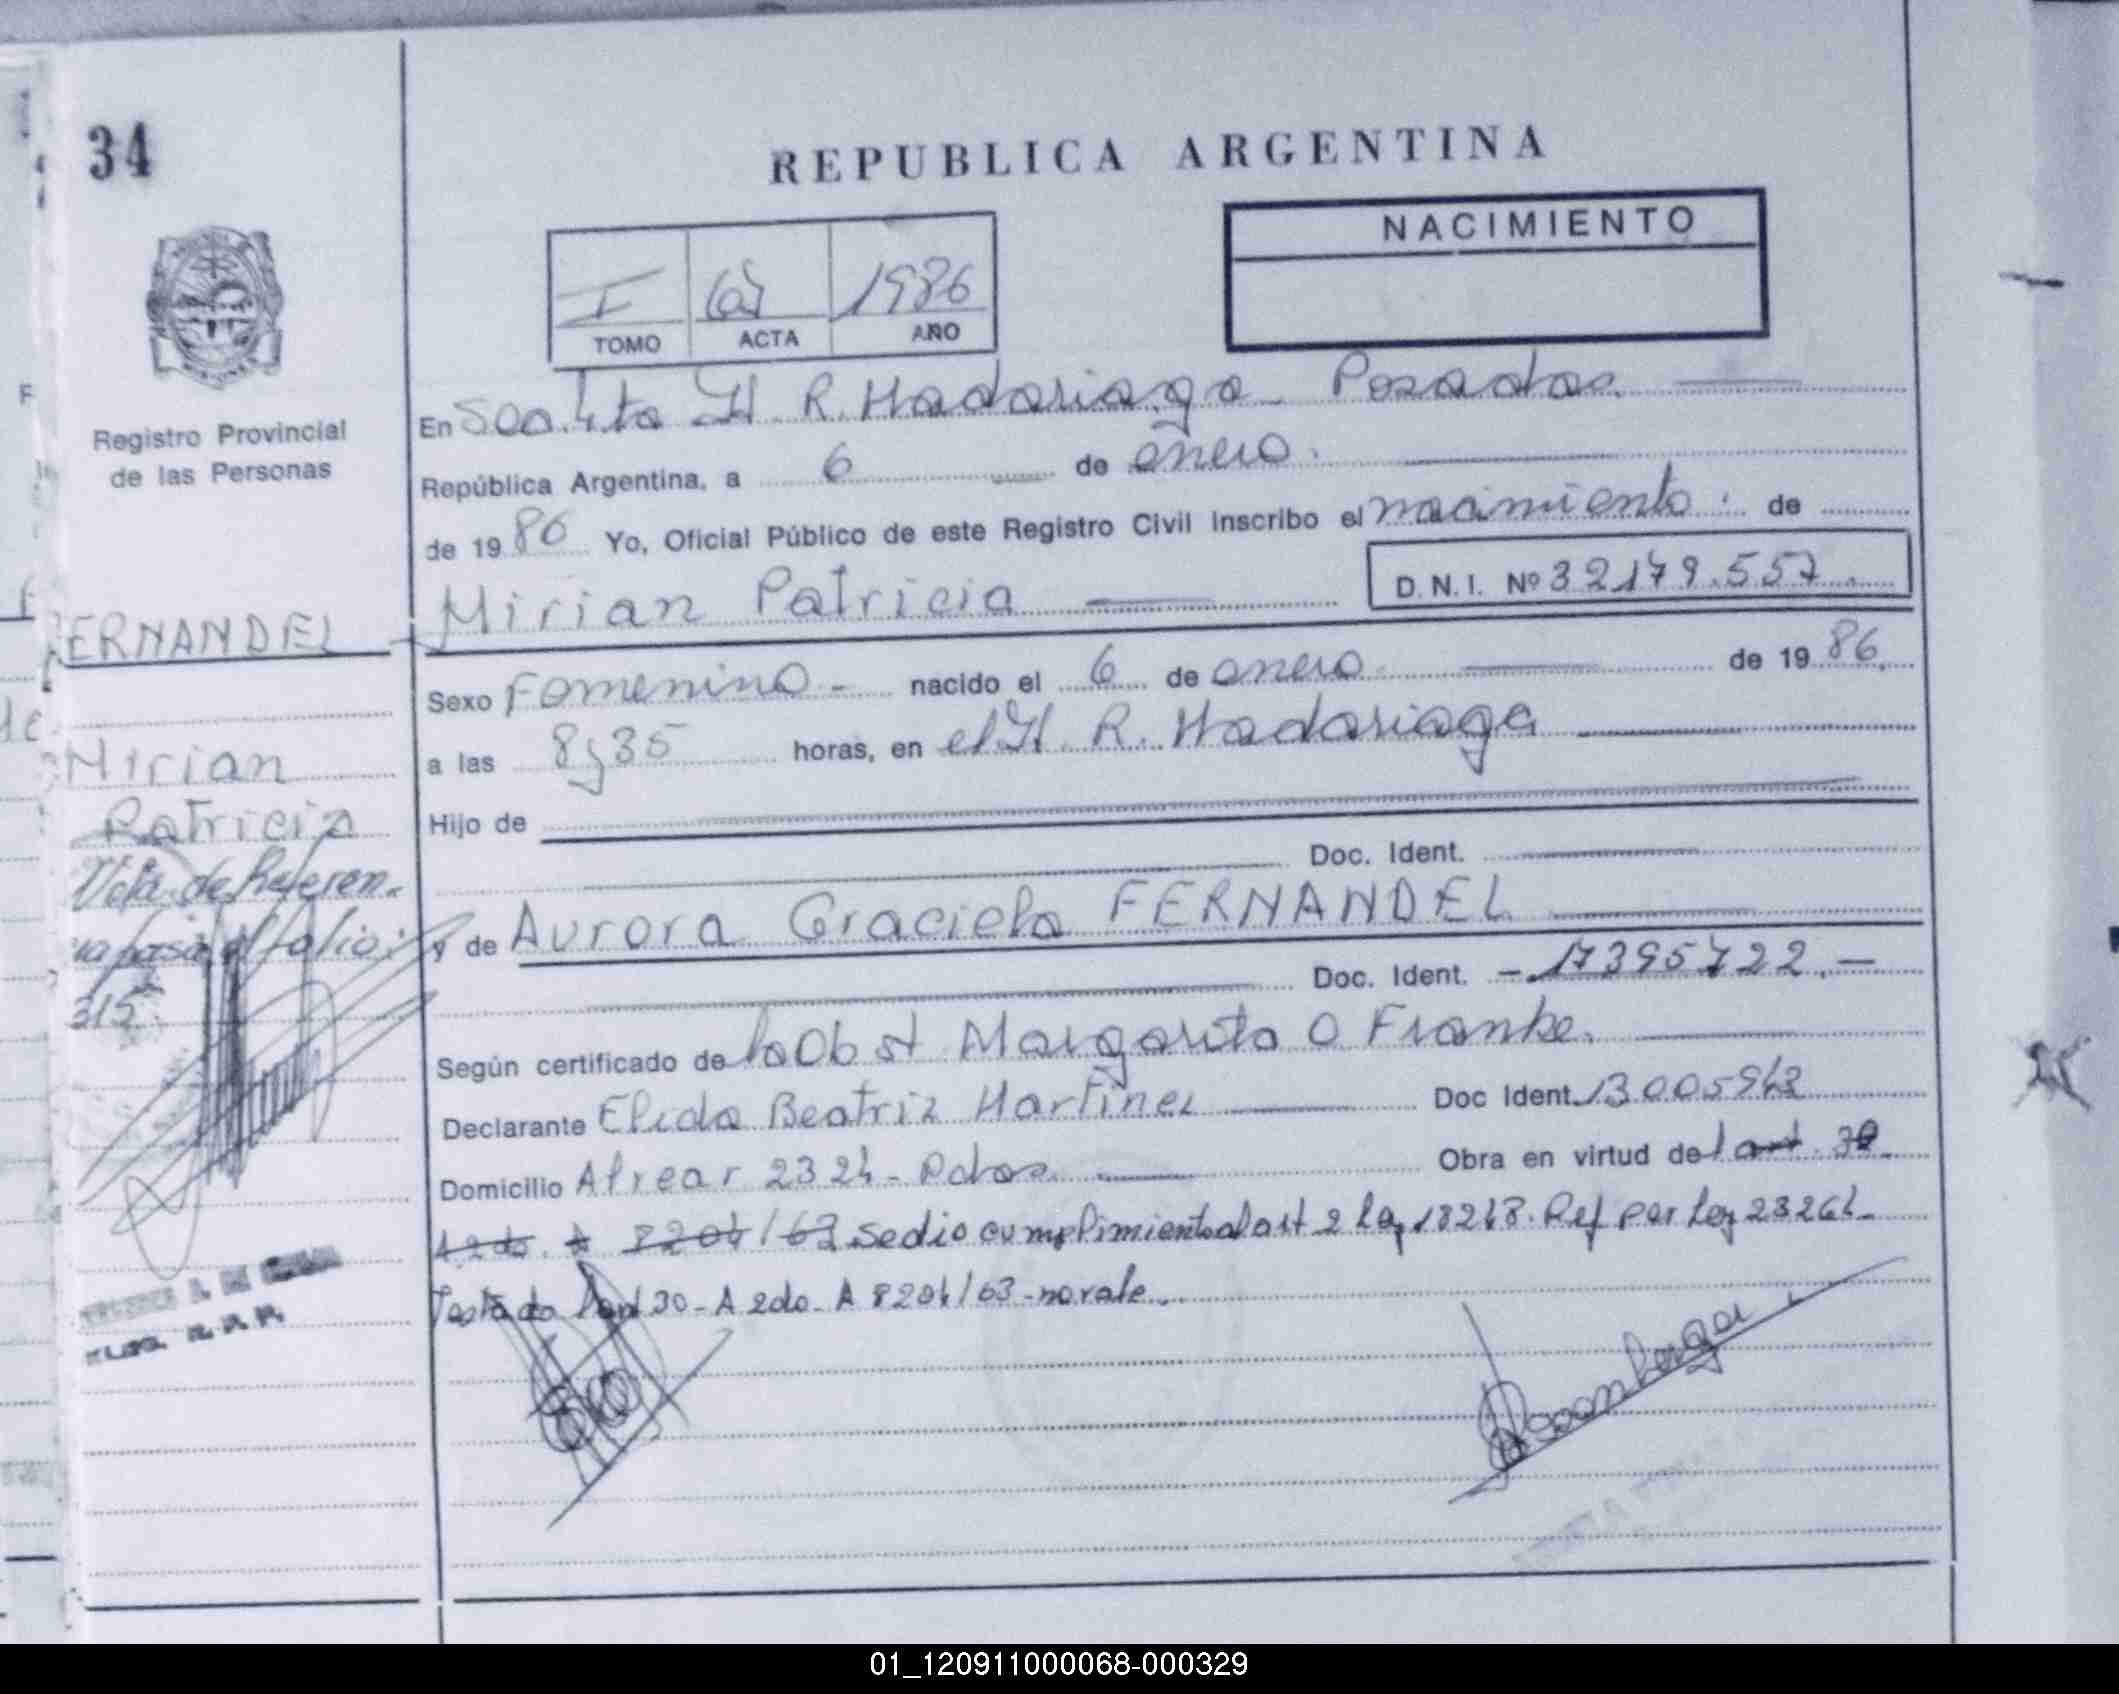 34
REPUBLICA ARGENTINA
NACIMIENTO
I 65 1986
TOMO ACTA AÑO
Registro Provincial
de las Personas
En Secc. 4ta H. R. Madariaga Posadas.
República Argentina, a 6 de enero.
de 1986 Yo, Oficial Público de este Registro Civil inscribo el nacimiento de
Mirian Patricia D.N.I. Nº 32179.557.
FERNANDEZ
Sexo Femenino - nacido el 6 de enero de 1986.
a las 8,35 horas, en el H. R. Madariaga
Mirian
Patricia
Hijo de
Doc. Ident.
Nota de Referen-
cia pasa al folio:
315
y de Aurora Graciela FERNANDEZ
Doc. Ident. - 17395722.-
Según certificado de la Obst Margarita O Franke.
Declarante Elida Beatriz Martinez Doc Ident. 13005943
Domicilio Alvear 2324 - Pdas. Obra en virtud del art. 30
A 2do. A 8204/63 se dio cumplimiento al art 2 Ley 18248. Ref por Ley 23264-
Testado l art 30 - A 2do - A 8204/63 - no vale.
01_120911000068-000329